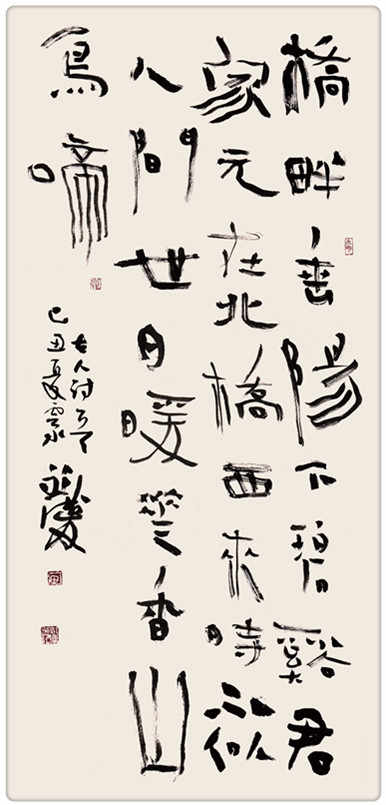 橋畔垂陽下碧谿君
家元在北橋西來時不似
人間世日暖花香山
鳥啼
古人詩
己丑夏